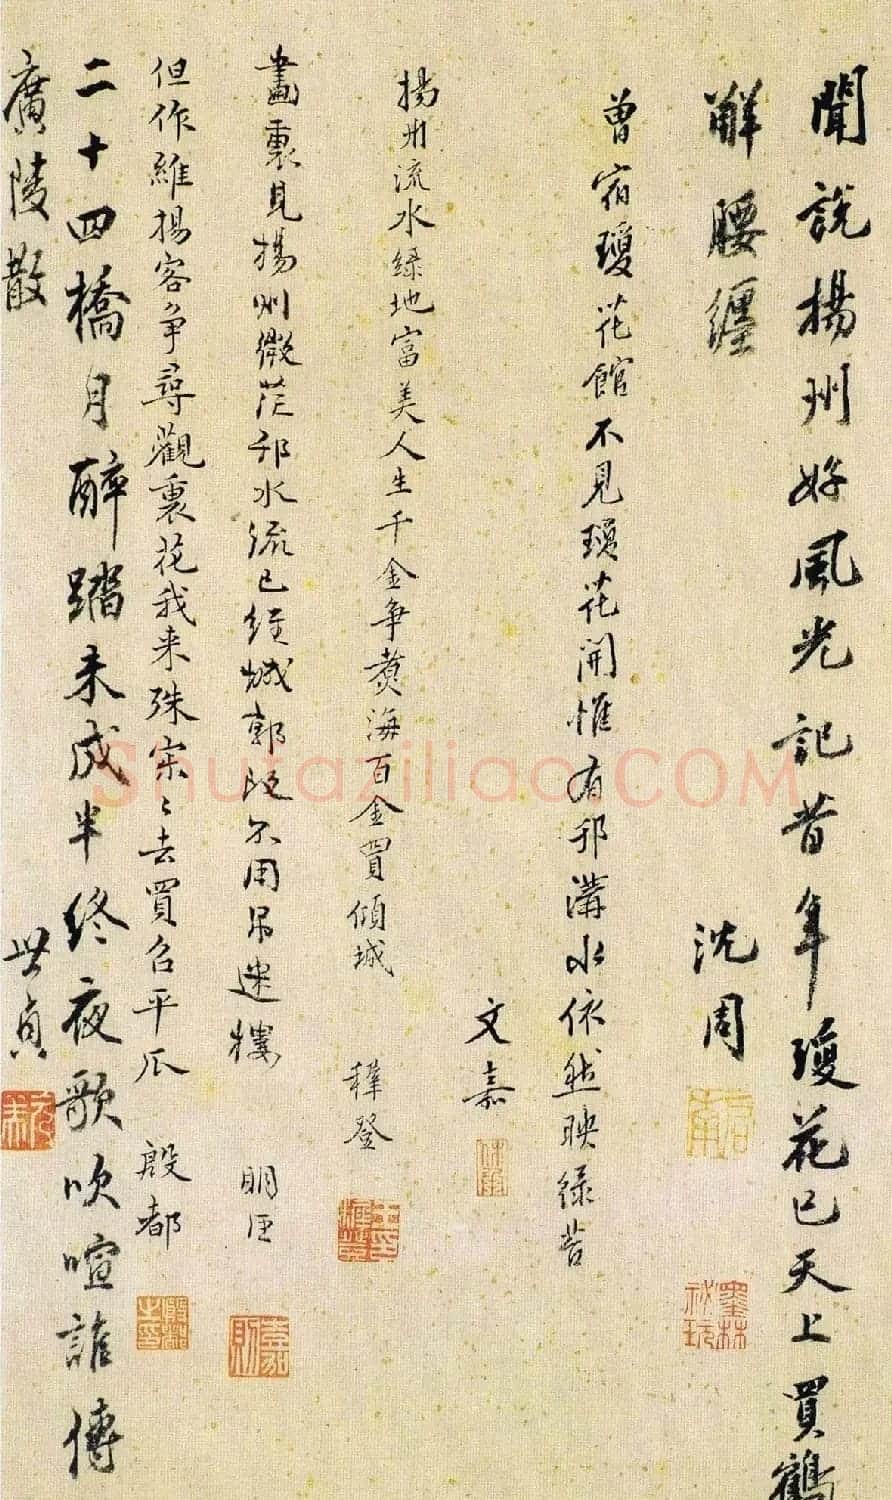 聞說揚州好風光記昔年瓊花已天上買鶴
解腰纏
沈周
曾宿瓊花館不見瓊花開惟有邗溝水依然映綠苔
文嘉
揚州流水綠地富美人生千金爭煮海百金買傾城
穉登
畫裏見揚州微茫邗水流已經城郭改不用吊迷樓
明臣
但作維揚客爭尋觀裏花我來殊寂〻去買召平瓜
殷都
二十四橋月醉踏未成半終夜歌吹喧誰傳
廣陵散
世貞
Shufaziliao.COM